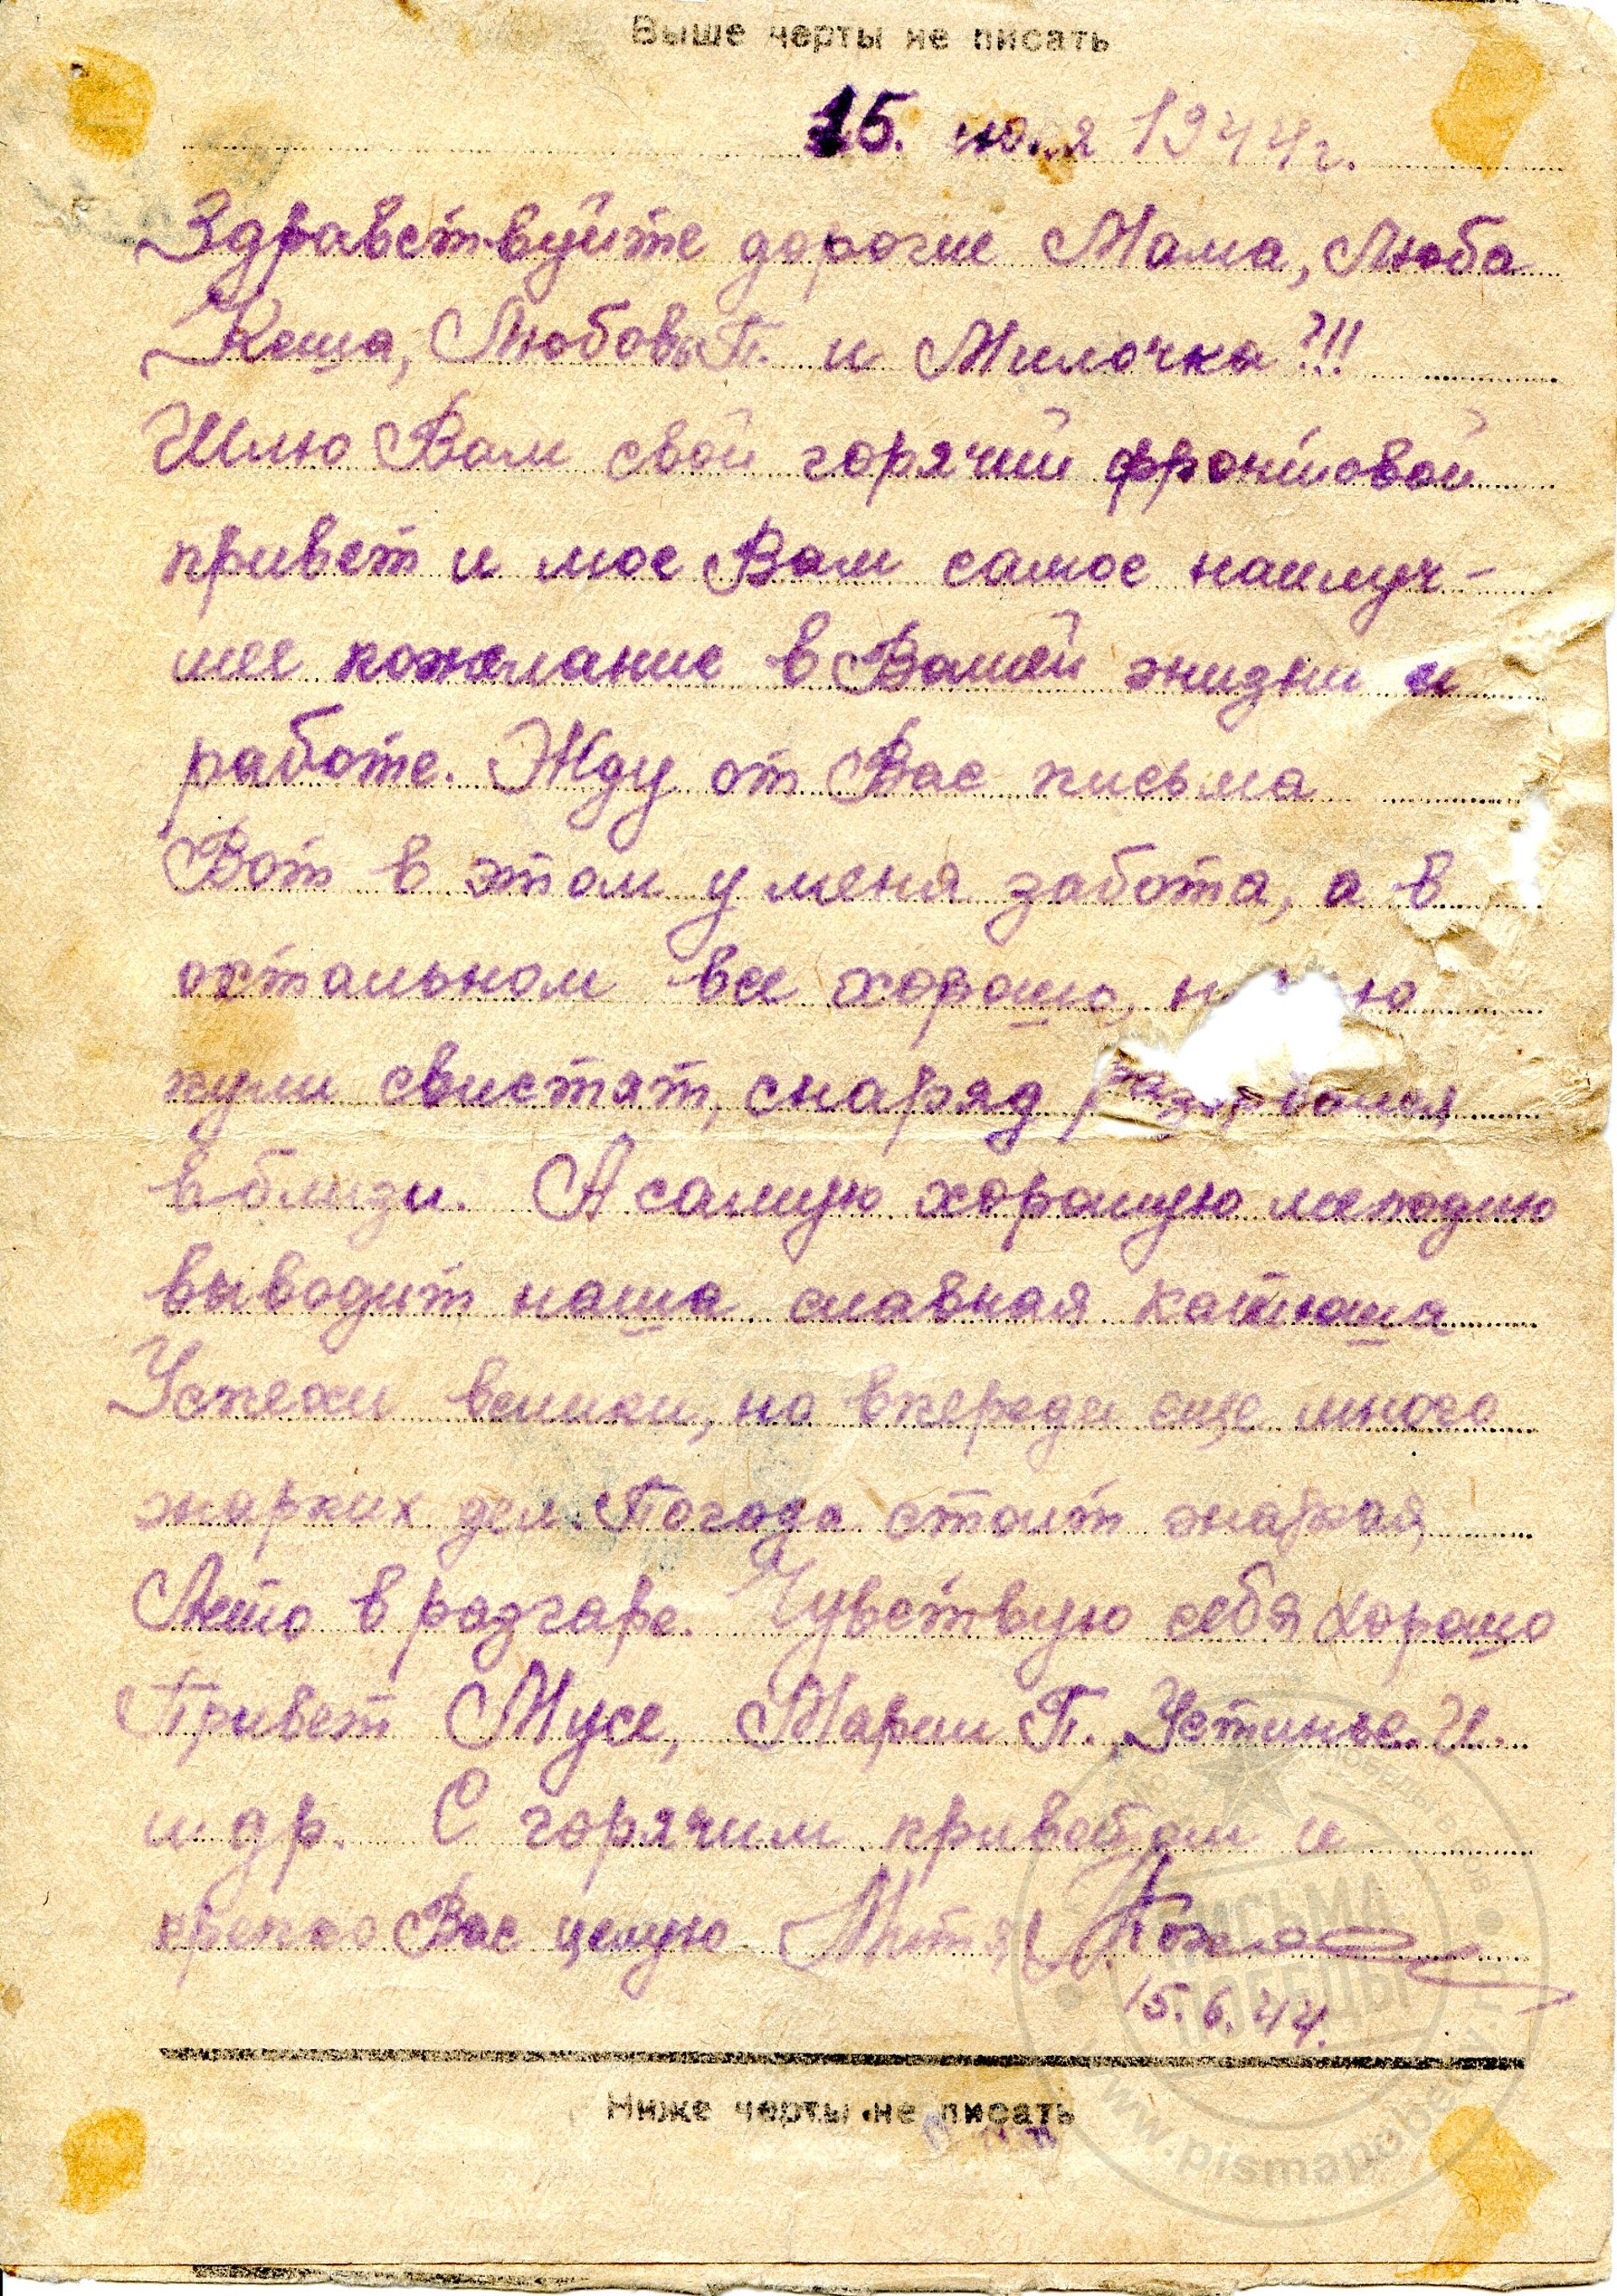 Выше черты не писать
15. июня 1944 г.
Здравствуйте дорогие Мама, Люба
Кеша, Любовь П. и Милочка?!!
Шлю Вам свой горячий фронтовой
привет и мое Вам самое наилуч-
шее пожелание в Вашей жизни и
работе. Жду от Вас письма
Вот в этом у меня забота, а в
остальном все хорошо,
пули свистят, снаряд разорвался
вблизи. А самую хорошую мелодию
выводит наша славная катюша
Успехи велики, но впереди еще много
жарких дел. Погода стоит жаркая,
Лето в разгаре. Чувствую себя хорошо
Привет Мусе, Марии П. Устинье. И.
и др. С горячим приветом и
крепко Вас целую Митя
15.6.44.
Ниже черты не писать
ПИСЬМА
ПОБЕДЫ